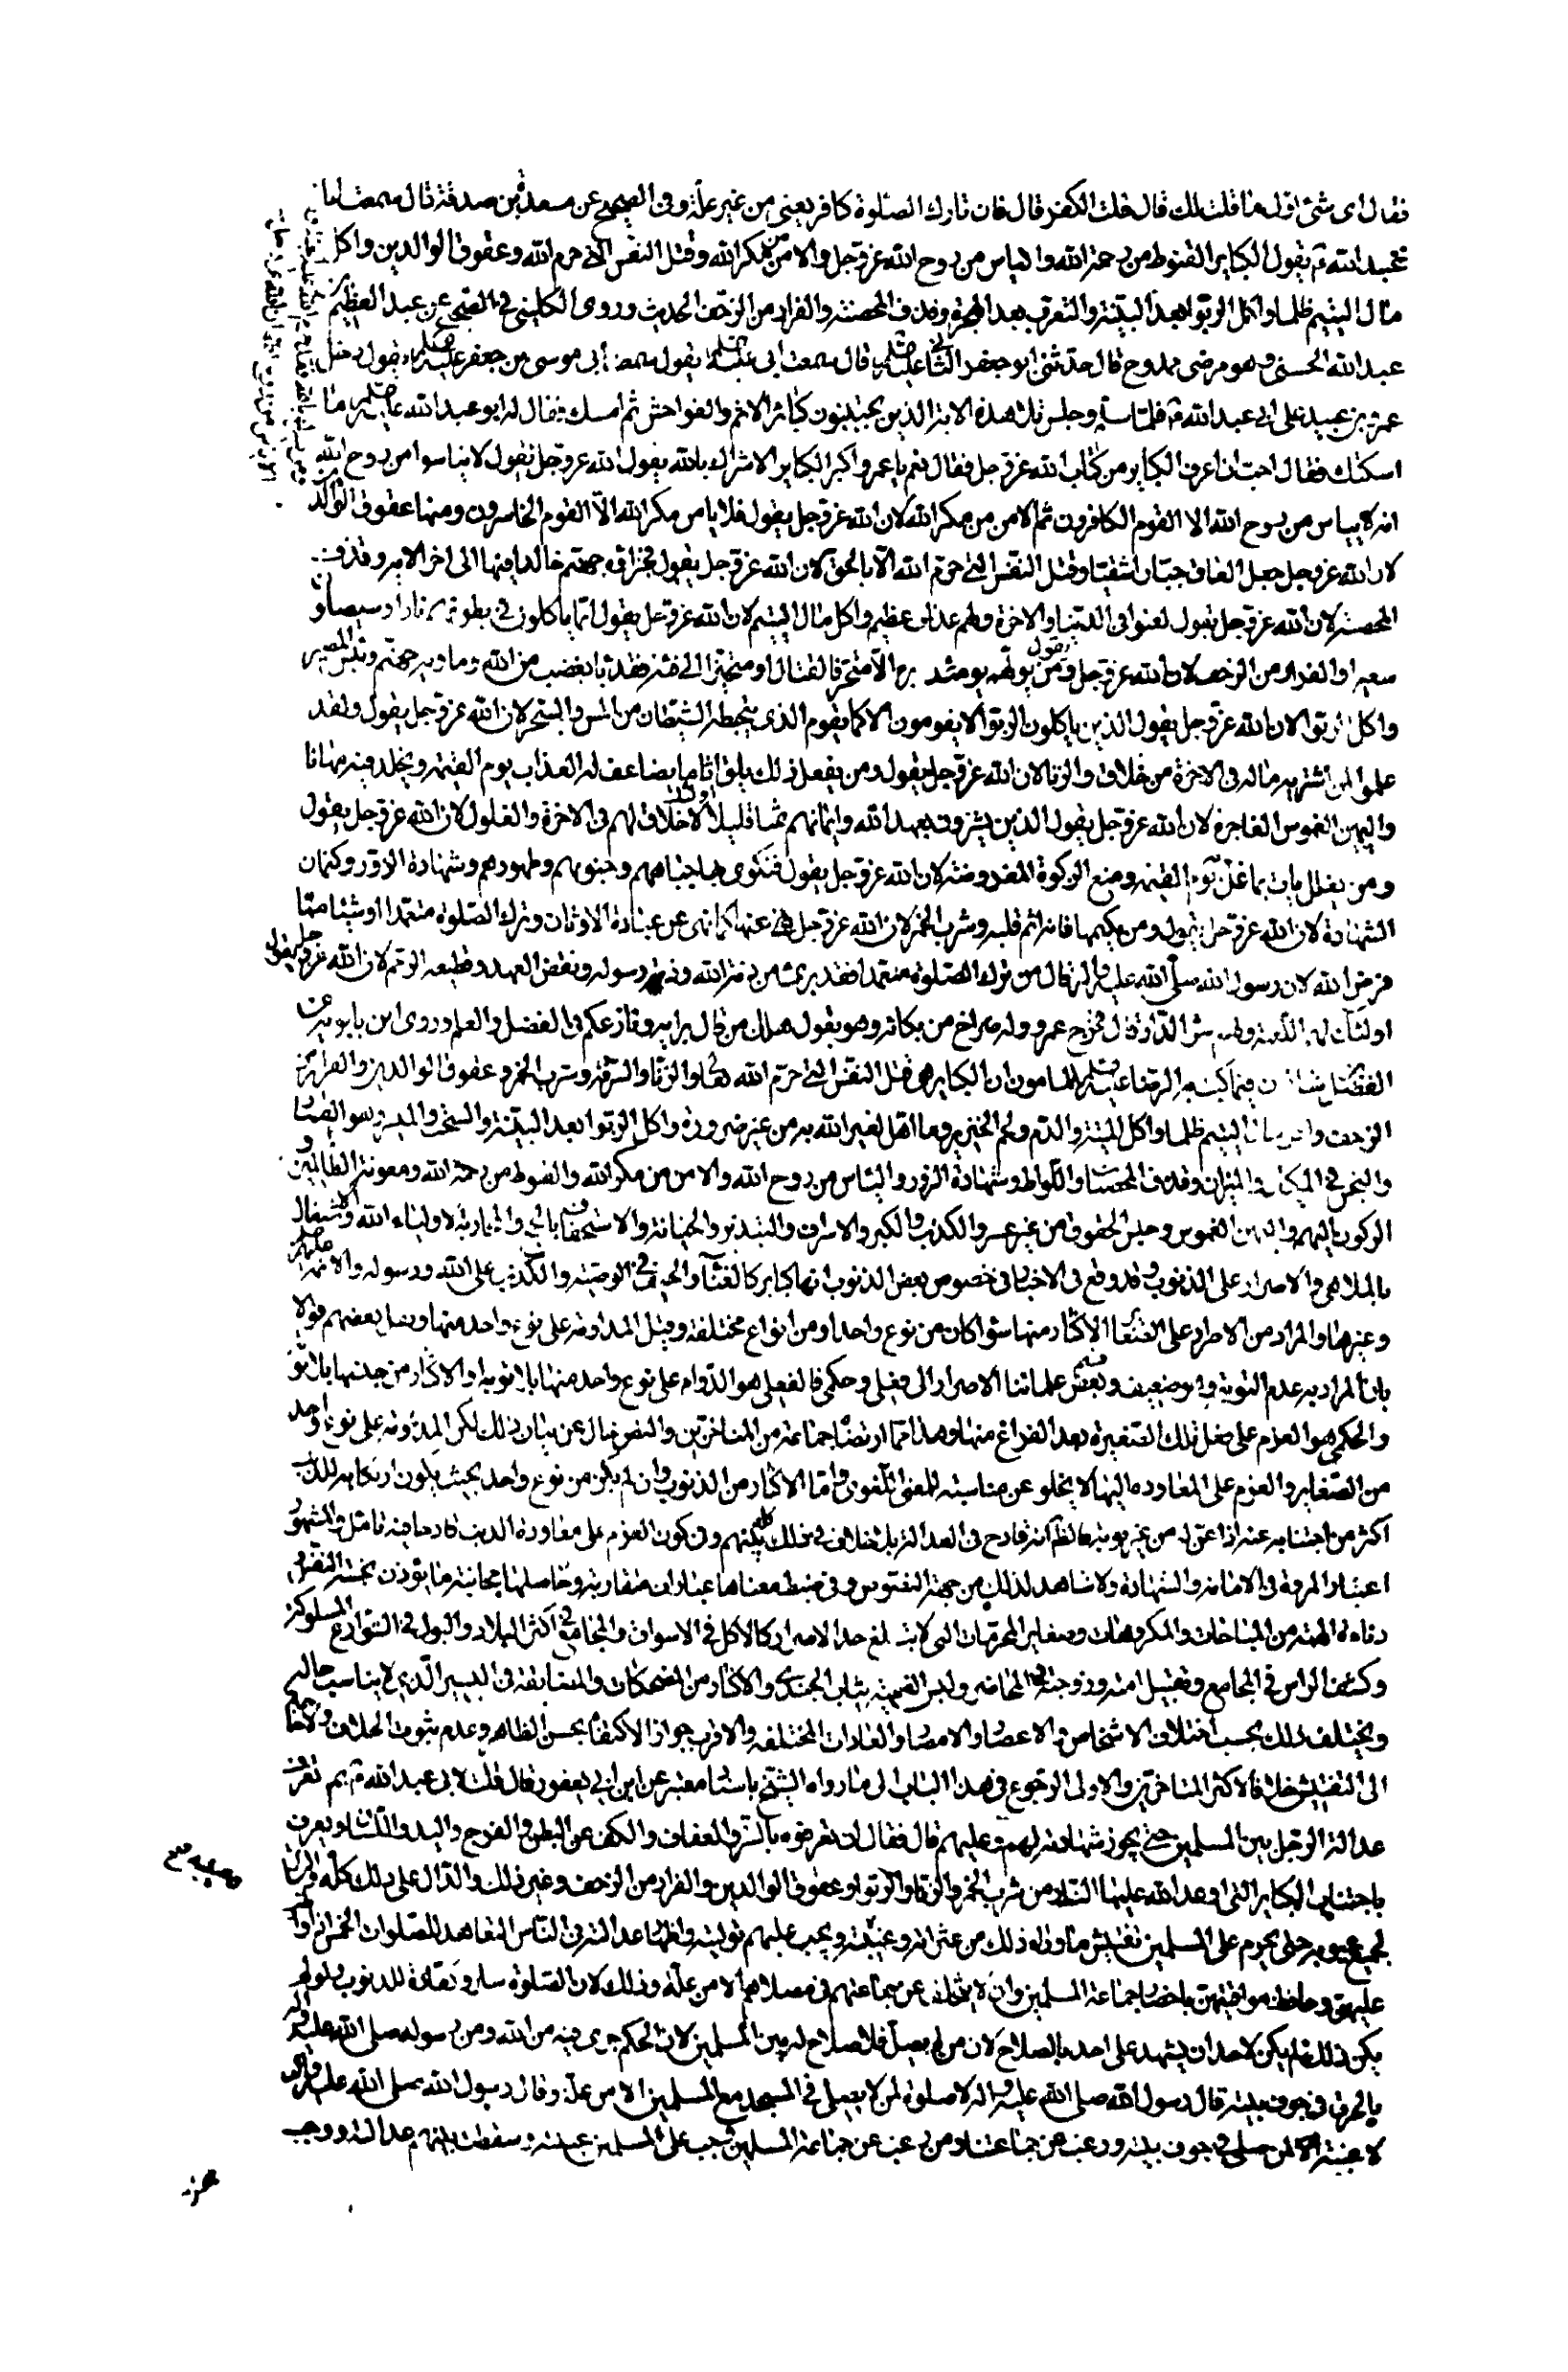 فقال اى شئ اول ما قلت لك قال قلت الكفر قال فان تارك الصلوة كافر يعنى من غير علة وفى الصحيح عن مسعدة بن صدقة قال سمعت ابا
عبد الله ع يقول الكباير القنوط من رحمة الله والياس من روح الله عز وجل والامن من مكر الله وقتل النفس التى حرم الله وعقوق الوالدين واكل
مال اليتيم ظلما واكل الربوا بعد البينة والتعرب بعد الهجرة وقذف المحصنة والفرار من الزحف الحديث وروى الكلينى فى الصحيح عن عبد العظيم بن
عبد الله الحسنى وهو مرضى ممدوح قال حدثنى ابو جعفر الثانى عليه قال سمعت ابى عليه يقول سمعت ابى موسى بن جعفر عليه يقول دخل
عمرو بن عبيد على ابى عبد الله ع فلما سلم وجلس تلا هذه الاية الذين يجتنبون كبائر الاثم والفواحش ثم امسك فقال له ابو عبد الله عليه ما
اسكتك فقال احب ان اعرف الكباير من كتاب الله عز وجل فقال نعم يا عمرو اكبر الكباير الاشراك بالله يقول الله عز وجل يقول لا تياسوا من روح الله
انه لا يياس من روح الله الا القوم الكافرون ثم الامن من مكر الله لان الله عز وجل يقول فلا يامن مكر الله الا القوم الخاسرون ومنها عقوق الوالد
لان الله عز وجل جعل العاق جبارا شقيا وقتل النفس التى حرم الله الا بالحق لان الله عز وجل يقول فجزاؤه جهنم خالدا فيها الى اخر الاية وقذف
المحصنة لان الله عز وجل يقول لعنوا فى الدنيا والاخرة ولهم عذاب عظيم واكل مال اليتيم لان الله عز وجل يقول انما ياكلون فى بطونهم نارا وسيصلون
سعيرا والفرار من الزحف لان الله عز وجل يقول ومن يولهم يومئذ دبره الا متحرفا لقتال او متحيزا الى فئة فقد باء بغضب من الله وماويه جهنم وبئس المصير
واكل الربوا لان الله عز وجل يقول الذين ياكلون الربوا لا يقومون الا كما يقوم الذى يتخبطه الشيطان من المس والسحر لان الله عز وجل يقول ولقد
علموا لمن اشتريه ما له فى الاخرة من خلاق والزنا لان الله عز وجل يقول ومن يفعل ذلك يلق اثاما يضاعف له العذاب يوم القيمة ويخلد فيه مهانا
واليمين الغموس الفاجرة لان الله عز وجل يقول الذين يشترون بعهد الله وايمانهم ثمنا قليلا اولئك لا خلاق لهم فى الاخرة والغلول لان الله عز وجل يقول
ومن يغلل يات بما غل يوم القيمة ومنع الزكوة المفروضة لان الله عز وجل يقول فتكوى بها جباههم وجنوبهم وظهورهم وشهادة الزور وكتمان
الشهادة لان الله عز وجل يقول ومن يكتمها فانه اثم قلبه وشرب الخمر لان الله عز وجل نهى عنها كما نهى عن عبادة الاوثان وترك الصلوة متعمدا او شيئا مما
فرض الله لان رسول الله صلى الله عليه واله قال من ترك الصلوة متعمدا فقد برئ من ذمة الله وذمة رسوله ونقض العهد وقطيعة الرحم لان الله عز وجل يقول
اولئك لهم اللعنة ولهم سوء الدار قال فخرج عمرو وله صراخ من بكائه وهو يقول هلك من قال برايه ونازعكم فى الفضل والعلم وروى ابن بابويه عن
الفضل بن شاذان فيما كتب به الرضا عليه للمامون ان الكباير هى قتل النفس التى حرم الله تعالى والزنا والسرقة وشرب الخمر وعقوق الوالدين والفرار من
الزحف واكل مال اليتيم ظلما واكل الميتة والدم ولحم الخنزير وما اهل لغير الله به من غير ضرورة واكل الربوا بعد البينة والسحت والميسر وهو القمار
والبخس فى المكيال والميزان وقذف المحصنات واللواط وشهادة الزور والياس من روح الله والامن من مكر الله والقنوط من رحمة الله ومعونة الظالمين و
الركون اليهم واليمين الغموس وحبس الحقوق من غير عسر والكذب والكبر والاسراف والتبذير والخيانة والاستخفاف بالحج والمحاربة لاولياء الله والاشتغال
بالملاهى والاصرار على الذنوب وقد وقع فى الاخبار فى خصوص بعض الذنوب انها كباير كالغناء والحيف فى الوصية والكذب على الله ورسوله والائمة عليهم
وغيرها والمراد من الاصرار على الصغاير الاكثار منها سواء كان من نوع واحد او من انواع مختلفة وقيل المداومة على نوع واحد منها ونقل بعضهم قولا
بان المراد به عدم التوبة وهو ضعيف وقسم بعض علمائنا الاصرار الى فعلى وحكمى فالفعلى هو الدوام على نوع واحد منها بلا توبة او الاكثار من جنسها بلا توبة
والحكمى هو العزم على فعل تلك الصغيرة بعد الفراغ منها وهذا مما ارتضاه جماعة من المتاخرين والنص خال عن بيان ذلك لكن المداومة على نوع واحد
من الصغاير والعزم على المعاودة اليها لا يخلو عن مناسبة للمعنى اللغوى واما الاكثار من الذنوب وان لم يكن من نوع واحد بحيث يكون ارتكابه للذنب
اكثر من اجتنابه عنه اذا عن له من غير توبة فالظ انه قادح فى العدالة بلا خلاف فى ذلك بينهم وفى كون العزم على معاودة الذنب قادحا فيه تامل والمشهور
اعتبار المروة فى الامامة والشهادة ولا شاهد لذلك من جهة النصوص وفى ضبط معناها عبارات متقاربة وحاصلها مجانبة ما يؤذن بخسة النفس و
دناءة الهمة من المباحات والمكروهات وصغاير المحرمات التى لا تبلغ حد الاصرار كالاكل فى الاسواق والمجامع فى اكثر البلاد والبول فى الشوارع المسلوكة
وكشف الراس فى المجامع وتقبيل امته وزوجته فى المحاضر ولبس الفقيه ثياب الجندى والاكثار من المضحكات والمضايقة فى اليسير الذى لا يناسب حاله
ويختلف ذلك بحسب اختلاف الاشخاص والاعصار والامصار والعادات المختلفة والاقرب جواز الاكتفاء بحسن الظاهر وعدم ثبوت الخلاف ولا حاجة
الى التفتيش خلافا لاكثر المتاخرين والاولى الرجوع فى هذا الباب الى ما رواه الشيخ باسناد معتبر عن ابن ابى يعفور قال قلت لابى عبد الله ع بم تعرف
عدالة الرجل بين المسلمين حتى يجوز شهادته لهم وعليهم قال فقال ان تعرفوه بالستر والعفاف والكف عن البطن والفرج واليد واللسان ويعرف
باجتناب الكباير التى اوعد الله عليها النار من شرب الخمر والزنا والربوا وعقوق الوالدين والفرار من الزحف وغير ذلك والدال على ذلك كله
لجميع عيوبه حتى يحرم على المسلمين تفتيش ما وراء ذلك من عثراته وغيبته ويجب عليهم توليته واظهار عدالته فى الناس التعاهد للصلوات الخمس اذا
عليهن وحافظ مواقيتهن باحضار جماعة المسلمين وان لا يتخلف عن جماعتهم فى مصلاهم الا من علة وذلك لان الصلوة ستر وكفارة للذنوب ولو لم
يكن ذلك لم يكن لاحد ان يشهد على احد بالصلاح لان من لم يصل فلا صلاح له بين المسلمين لان الحكم جرى فيه من الله ومن رسوله صلى الله عليه واله
بالحرق فى جوف بيته قال رسول الله صلى الله عليه واله لا صلوة لمن لا يصلى فى المسجد مع المسلمين الا من علة وقال رسول الله صلى الله عليه واله
لا غيبة الا لمن صلى فى جوف بيته ورغب عن جماعتنا ومن رغب عن جماعة المسلمين وجب على المسلمين غيبته وسقطت بينهم عدالته ووجب